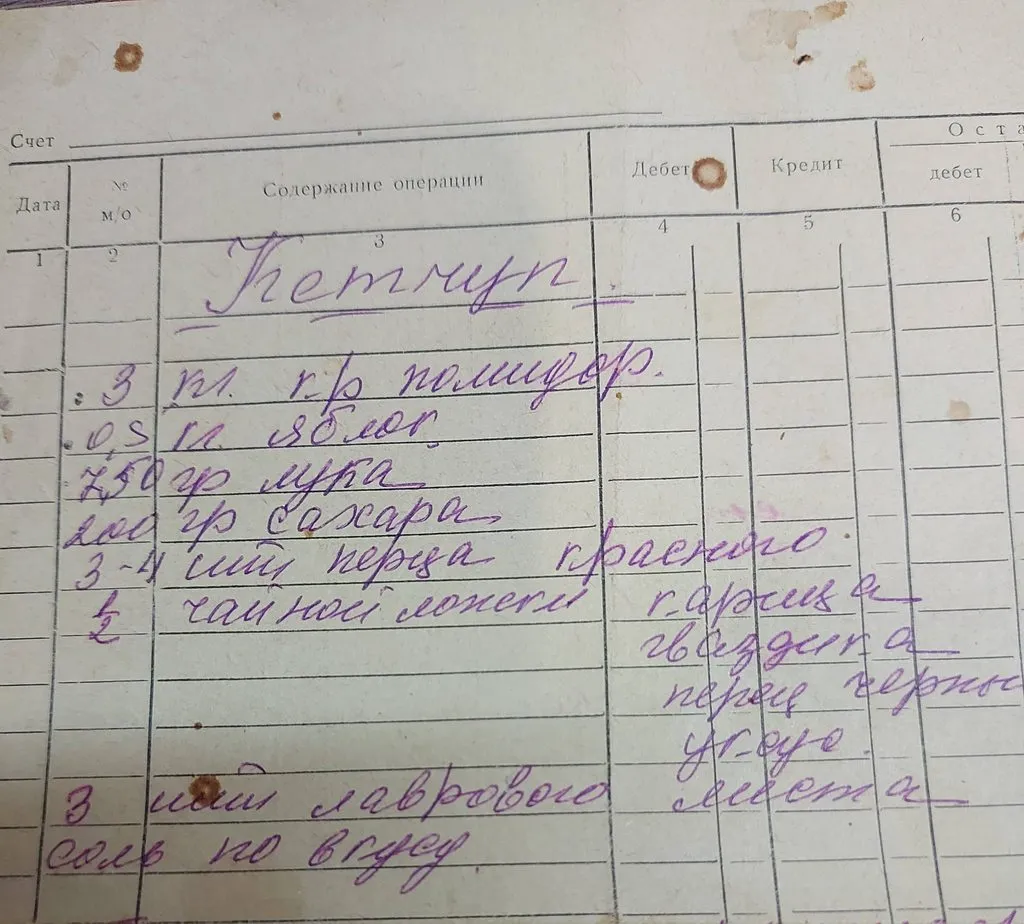 Счет
Оста
Дата № м/о Содержание операции Дебет Кредит дебет
1 2 3 4 5 6
Кетчуп
3 кг. кр помидор.
0,5 кг. яблок
750 гр лука
200 гр сахара
3-4 шт перца красного
1/2 чайной ложки карица
гваздика
перец черны
уксус
3 шт лаврового листа
соль по вкусу